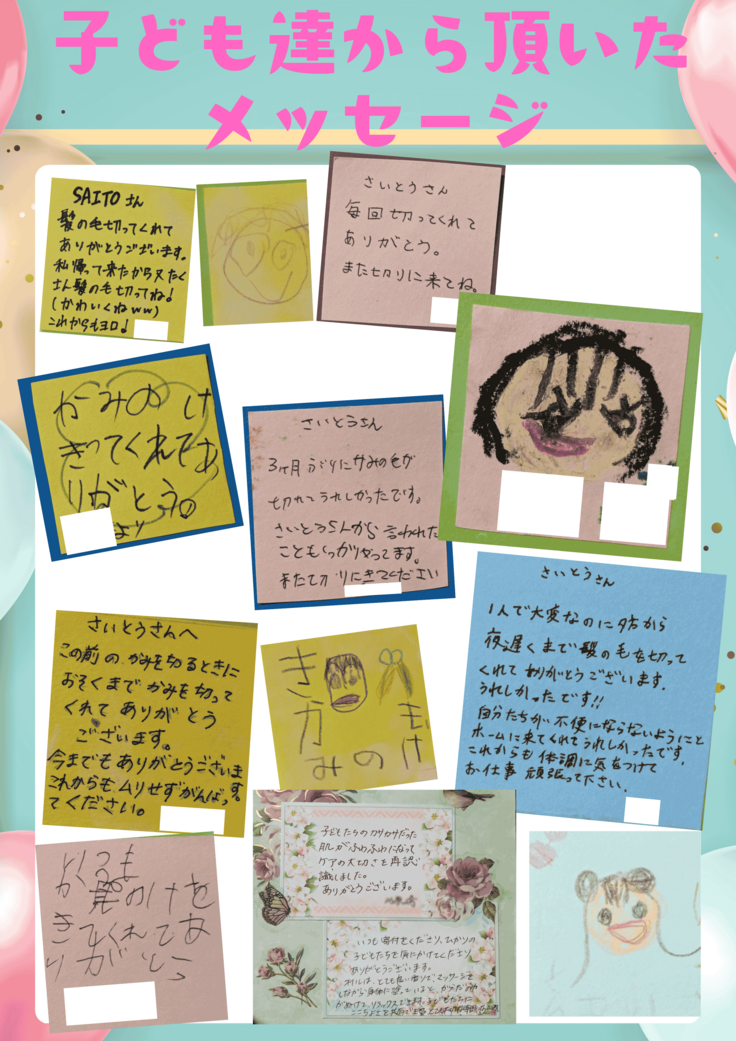 子ども達から頂いた
メッセージ
SAITOさん
髪の毛切ってくれて
ありがとうございます。
私帰って来たから又たく
さん髪の毛切ってね!
(かわいくねww)
これからもヨロ!
さいとうさん
毎回切ってくれて
ありがとう。
また切りに来てね。
かみのけ
きってくれてあ
りがとう。
より
さいとうさん
3ヶ月ぶりにかみの毛が
切れてうれしかったです。
さいとうさんから言われた
こともしっかりやってます。
また切りにきてください
さいとうさんへ
この前の、かみを切るときに
おそくまでかみを切って
くれてありがとう
ございます。
今までもありがとうございます
これからもムリせずがんばっ
てください。
かみのけ
さいとうさん
1人で大変なのに夕方から
夜遅くまで髪の毛を切って
くれてありがとうございます。
うれしかったです!!
自分たちが不便にならないようにと
ホームに来てくれてうれしかったです。
これからも体調に気をつけて
お仕事頑張って下さい。
のけを
きてくれてあ
りがとう
子どもたちのカサカサだった
肌がふわふわになって
ケアの大切さを再認
識しました。
ありがとうございます。
いつも寄付をくださり、ひかりの
子どもたちを気にかけてくださり
ありがとうございます。
オイルは、とても良い香りでマッサージを
しながら身体に塗っていると、